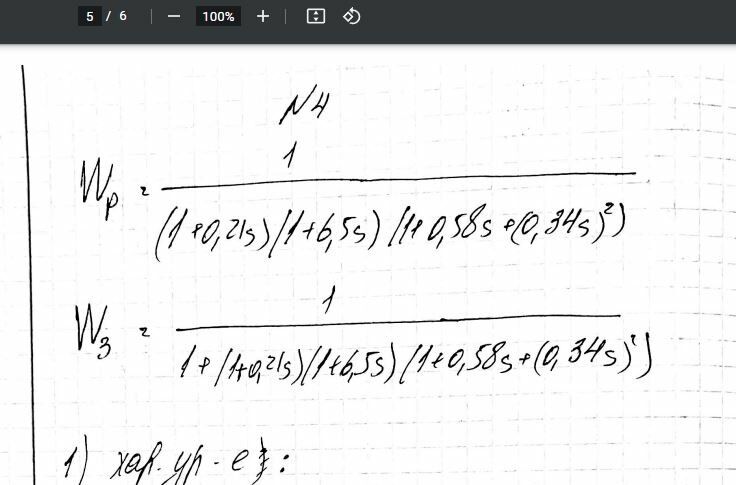 5 / 6 100%
N4
Wp = 1
(1+0,21s)(1+6,5s)(1+0,58s+(0,34s)²)
Wз = 1
1+(1+0,21s)(1+6,5s)(1+0,58s+(0,34s)²)
1) хар. ур-е: